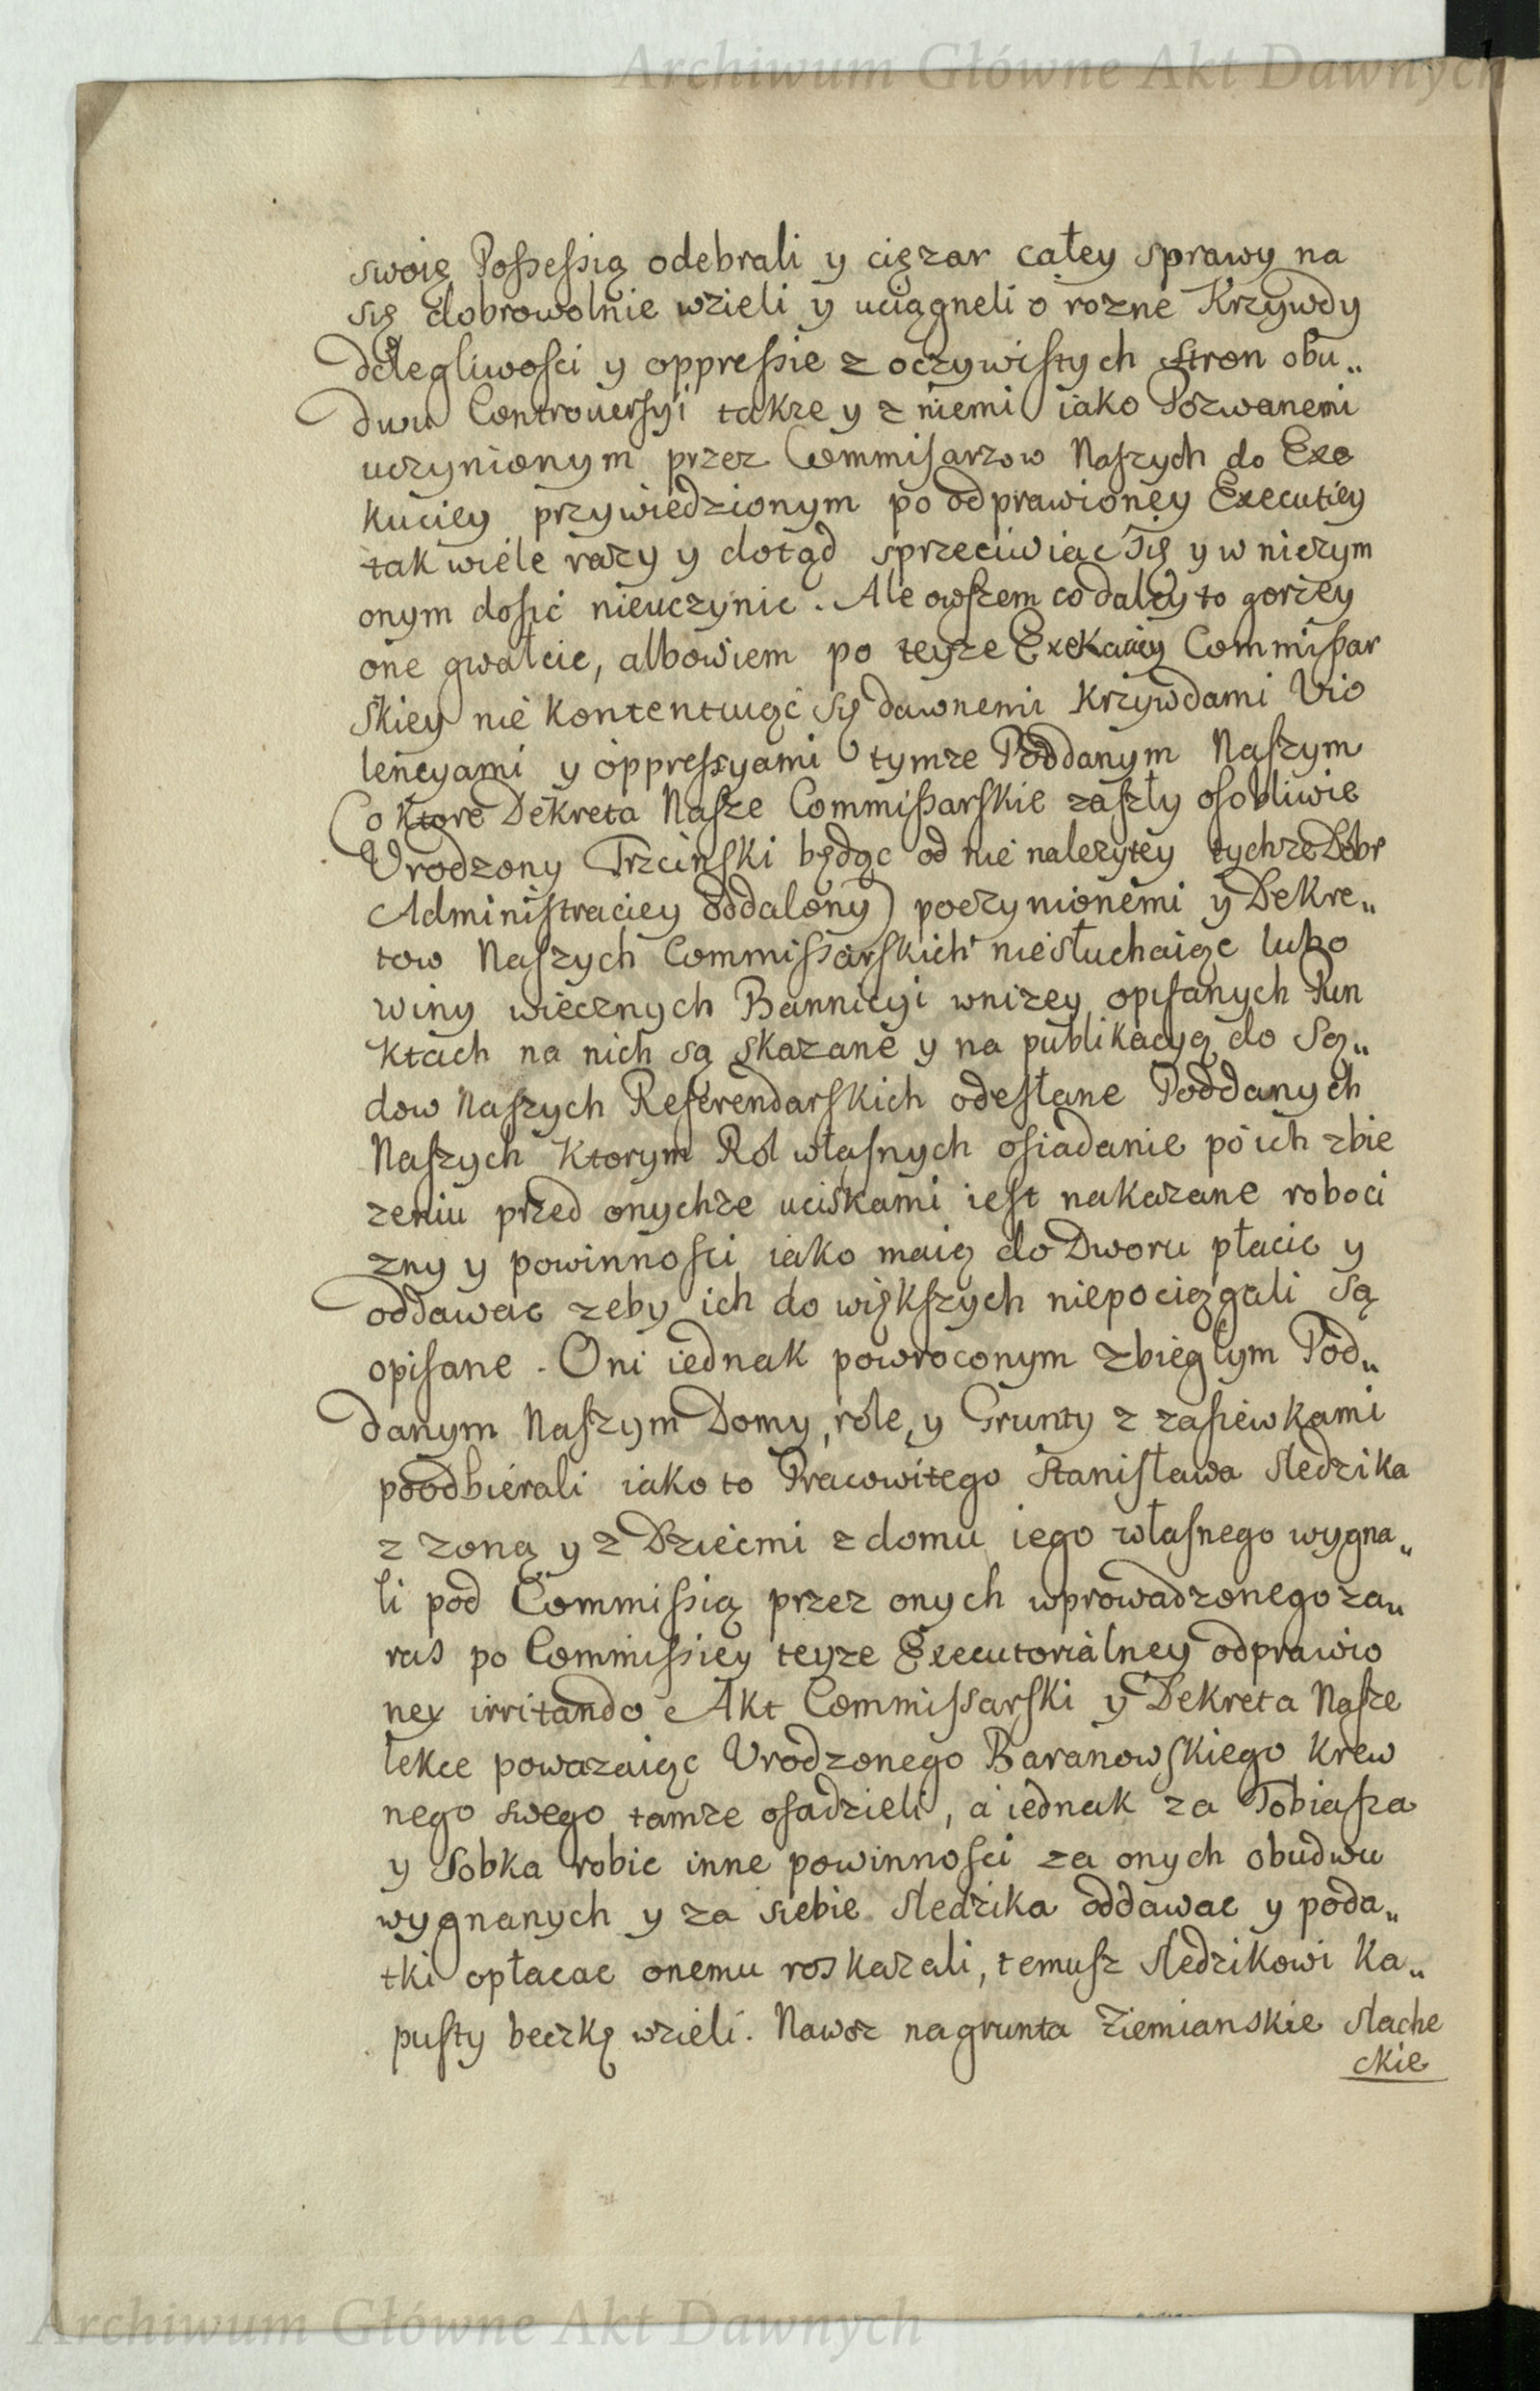 Archiwum Główne Akt Dawnych
swoię Possessią odebrali y cięzar całey sprawy na
się dobrowolnie wzieli y uciągneli o rozne Krzywdy
dolegliwosci y oppressie z oczywistych stron obu„
dwu Controuersyi takze y z niemi iako Pozwanemi
uczynionym przez Commisarzow Naszych do Exe
kuciey przywiedzionym po odprawioney Executiey
tak wiele razy y dotąd sprzeciwiac się y w niczym
onym dosić nieuczynic. Ale owszem co daley to gorzey
one gwałcic, albowiem po teyze Exekuciey Commissar
skiey nie kontentuiąć się dawnemi Krzywdami Vio
lencyami y oppressyami tymze Poddanym Naszym
(o ktore Dekreta Nasze Commissarskie zaszły osobliwie
Vrodzony Trzcinski będąc od nie nalezytey tychze Dobr
Administraciey oddalony) poczynionemi y Dekre„
tow Naszych Commissarskich niesłuchaiąc lubo
winy wiecznych Bannicyi wnizey opisanych Pun
ktach na nich są skazane y na publikacyą do Są„
dow Naszych Referendarskich odesłane Poddanych
Naszych Ktorym Rol własnych osiadanie po ich zbie
zeniu przed onychze uciskami iest nakazane roboci
zny y powinnosci iako maią do Dworu płacic y
oddawac zeby ich do większych niepociągali są
opisane. Oni iednak powroconym zbiegłym Pod„
danym Naszym Domy, role, y Grunty z zasiewkami
poodbierali iako to Pracowitego Stanisława Sledzika
z zoną y z Dziećmi z domu iego własnego wygna„
li pod Commissią przez onych wprowadzonego za„
ras po Commissiey teyze Executorialney odprawio
ney irritando Akt Commissarski y Dekreta Nasze
lekce powazaiąc Vrodzonego Baranowskiego Krew
nego swego tamze osadzieli, a iednak za Tobiasza
y Sobka robic inne powinnosci za onych obudwu
wygnanych y za siebie Sledzika oddawac y poda„
tki opłacac onemu roskazali, temusz Sledzikowi Ka„
pusty beczkę wzieli. Nawoz na grunta Ziemianskie slache
ckie
Archiwum Główne Akt Dawnych